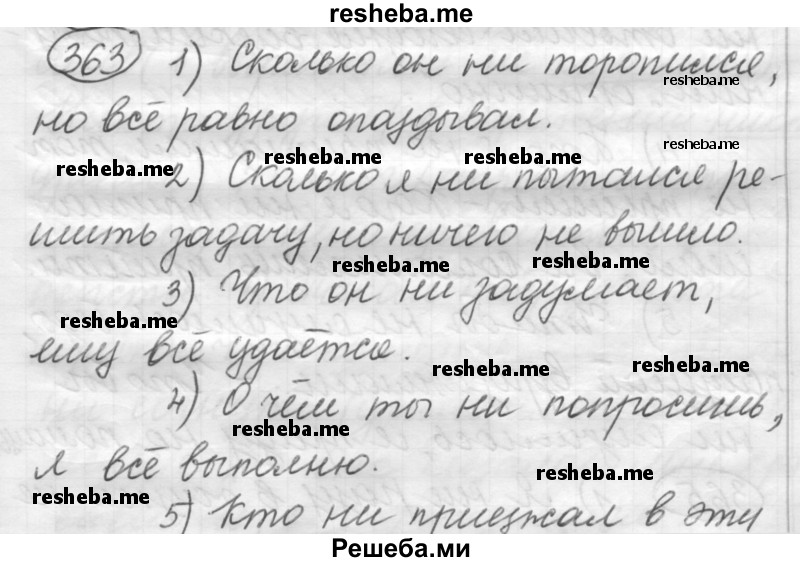 resheba.me
363 1) Сколько он ни торопился,
resheba.me
но всё равно опаздывал.
resheba.me
resheba.me resheba.me resheba.me
2) Сколько я ни пытался ре-
шить задачу, но ничего не вышло.
resheba.me resheba.me
3) Что он ни задумает,
resheba.me
ему всё удаётся.
resheba.me resheba.me
4) О чём ты ни попросишь,
resheba.me
я всё выполню.
resheba.me resheba.me
5) Кто ни приезжал в эту
Решеба.ми